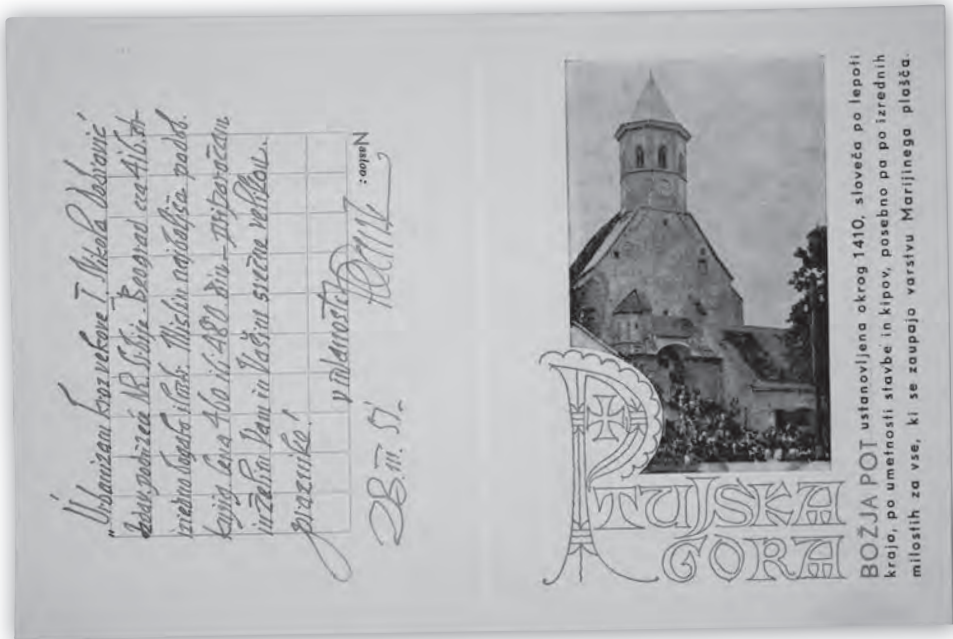 "Urbanizam kroz vekove I Nikola Dobrović
NR Srbije - Beograd cca 416 str
bogato ilustr. Mislim najboljša
knjiga Cena 460 ili 480 din - priporočam
in želim Vam in Vašim srečne velikon.
praznike!
v vdanosti
28. III. 51.
Naslov:
PTUJSKA
GORA
BOŽJA POT ustanovljena okrog 1410, sloveča po lepoti
kraja, po umetnosti stavbe in kipov, posebno pa po izrednih
milostih za vse, ki se zaupajo varstvu Marijinega plašča.